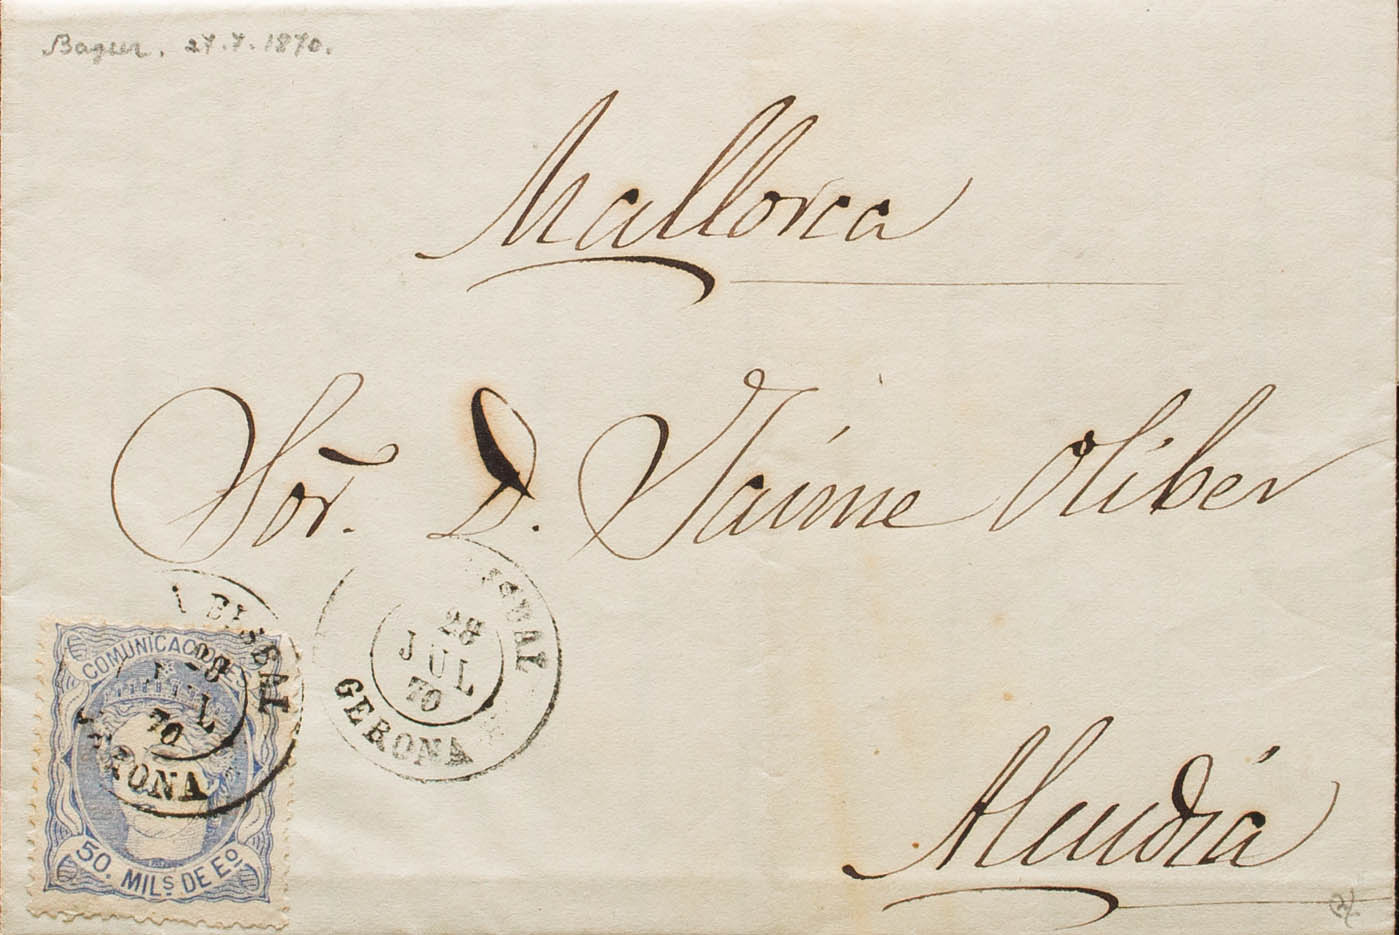 Bagur. 27.7.1870.
Mallorca
Sor. D. Jaime Oliber
BISBAL
28
JUL
70
GERONA
COMUNICACIONES
BISBAL
28
JUL
70
GERONA
50. MILS. DE Eo.
Alcudia